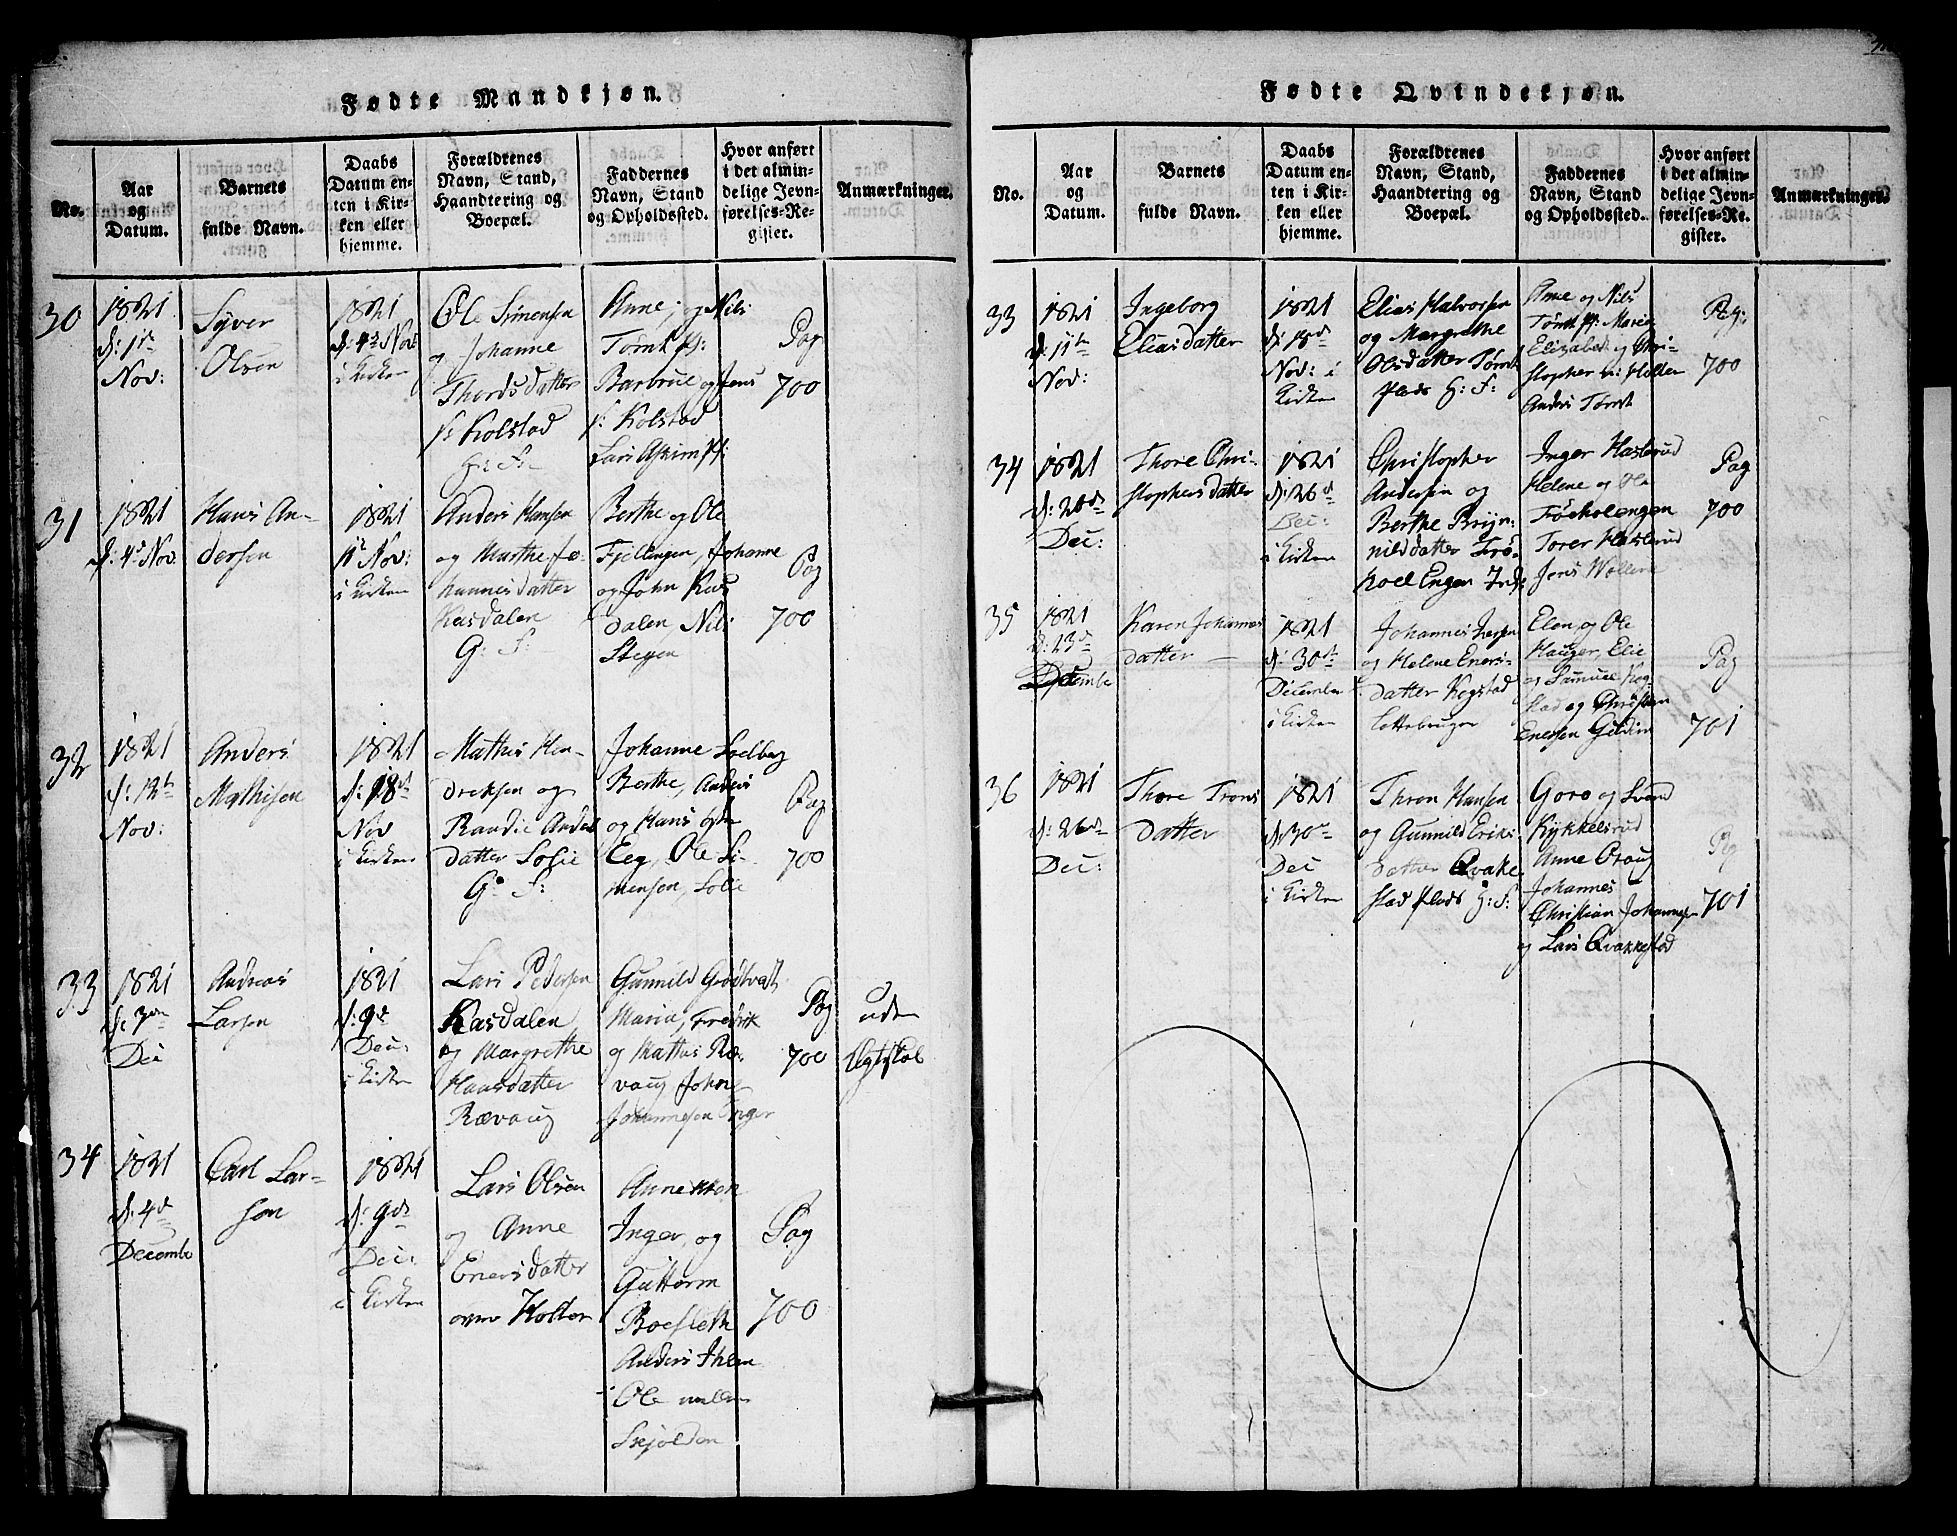 Fødte Mandkjøn.
No.
Aar
og
Datum.
Barnets
fulde Navn.
Daabs
Datum en-
ten i Kir-
ken eller
hjemme.
Forældrenes
Navn, Stand,
Haandtering og
Boepæl.
Faddernes
Navn, Stand
og Opholdssted.
Hvor anført
i det almin-
delige Jevn-
førelses-Re-
gister.
Anmærkninger.
30
1821
d: 1ste
Nov:
Syver
Olsen
1821
d: 4de Nov:
i Kirken
Ole Simensen
og Johanne
Thordsdatter
Kolstad
G: S:
Anne og Nils
Tomt
Barbrue og Jens
Kolstad
Lars Askim
Pag
700
31
1821
d: 4de Nov.
Hans An-
dersen
1821
Nov:
i Kirken
Anders Hansen
og Marthe Jo-
hannesdatter
Kasdalen
G: S:
Berthe og Ole
Johanne
og John Kas
dalen, Nils
Pag
700
32
1821
d: 12te
Nov:
Anders
Mathisen
1821
d: 18de
Nov
i Kirken
Mathis Hen-
driksen og
Randie Anders
datter Solie
G: S:
Johanne Soelberg
Berthe, Anders
og Hans
Eeg, Ole Si-
mensen, Solie
Pag
700
33
1821
d: 3die
Dec
Andreas
Larsen
1821
d: 9de
Dec:
i Kirken
Lars Pedersen
Kasdalen
og Margrethe
Hansdatter
Rævoug
Gunnild Grødtvedt
Maria, Fredrik
og Mathis Ræ-
voug John
Johannesen
Pag
700
uden
Ægteskab
34
1821
d: 4de
Decembr
Carl Lar-
sen
1821
d: 9de
Dec:
i Kirken
Lars Olsen
og Anne
Enersdatter
Holter
Anne
Inger, og
Guttorm
Anders
Ole
Skjolden
Pag
700
Fødte Qvindekjøn.
No.
Aar
og
Datum.
Barnets
fulde Navn.
Daabs
Datum en-
ten i Kir-
ken eller
hjemme.
Forældrenes
Navn, Stand,
Haandtering og
Boepæl.
Faddernes
Navn, Stand
og Opholdssted.
Hvor anført
i det almin-
delige Jevn-
førelses-Re-
gister.
Anmærkninger.
33
1821
d: 11te
Nov:
Ingeborg
Eliasdatter
1821
d: 18de
Nov: i
Kirken
Elias Halvorsen
og Margrethe
Olsdatter Tomt
plads G: S:
Anne og Nils
Tomt Marie
Elizabet og Chri-
stopher Holter
Anders Tomt
Pag:
700
34
1821
Dec:
Thore Chri-
stophersdatter
1821
d: 26de
Dec:
i Kirken
Christopher
Andersen og
Berthe Bryn-
nildsdatter
Engen Inds:
Inger Haslerud
Helene og Ole
Torer Haslerud
Jens
Pag
700
35
1821
d: 23de
Decembr
Karen Johannes
datter
1821
d: 30te
December
i Kirken
Johannes
og Helene Eners-
datter Kegstad
Leilændinger
Elen og Ole
Hauger, Elie
og Samuel Keg-
stad og Christian
Enersen
Pag
701
36
1821
d: 26de
Dec:
Thore Trons
datter
1821
d 30te
Dec
i Kirken
Thron Hansen
og Gunnild Eriks-
datter Qvake
stad plads G: S:
Goro og Svend
Kykkelsrud
Anne Oraug
Johannes
Christian Johannesen
og Lars Qvakkestad
Pag
701